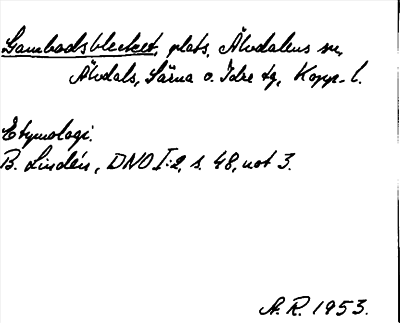 Gambadsblecket, plats, Älvdalens sn,
Älvdals, Särna o. Idre tg, Kopp. l.
Etymologi.
B. Lindén, DNO I:2, s. 48, not 3.
A. R. 1953.